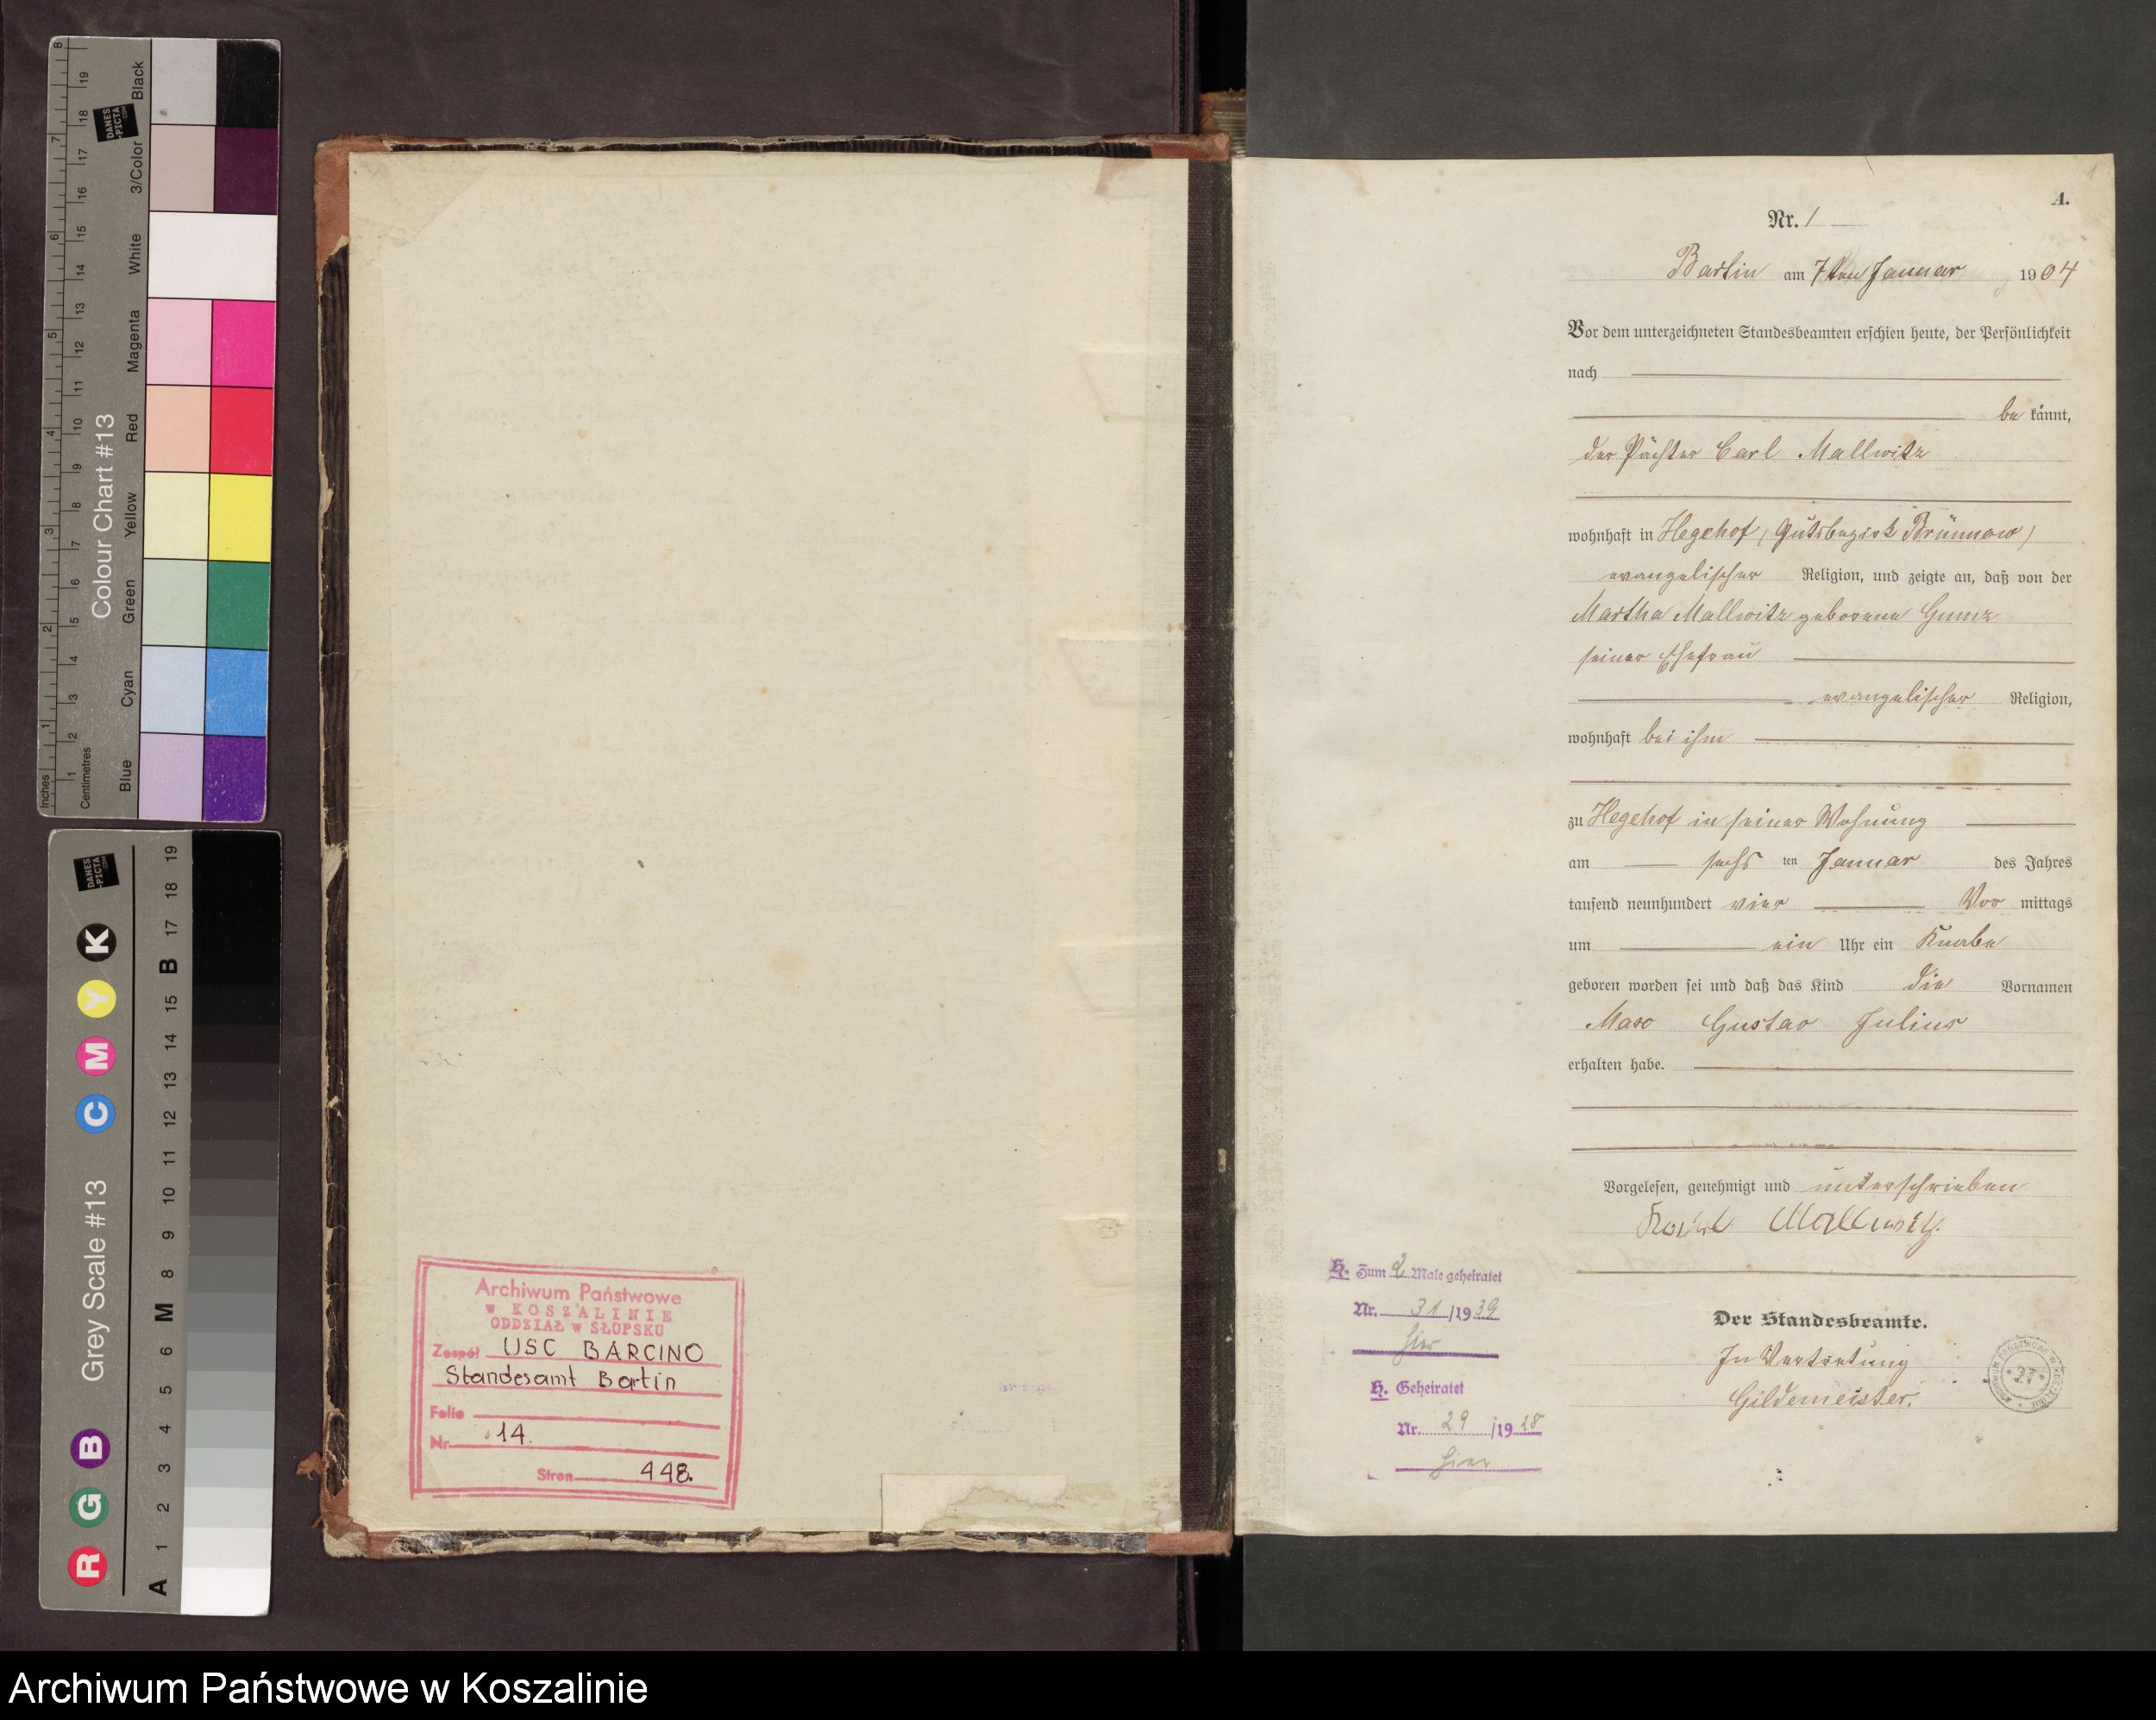 Colour Chart #13
Blue
Cyan
Green
Yellow
Red
Magenta
White
3/Color
Black
Inches
Centimetres
DANES
-PICTA
.COM
Grey Scale #13
R G B
C M Y K
A 1 2 3 4 5 6 M 8 9 10 11 12 13 14 15 B 17 18 19
Archiwum Państwowe
W KOSZALINIE
ODDZIAŁ w SŁUPSKU
Zespół USC BARCINO
Standesamt Bartin
Folio
Nr. 14.
Stron 448.
A.
Nr. 1
Bartin am 7ten Januar 1904
Vor dem unterzeichneten Standesbeamten erschien heute, der Persönlichkeit
nach
be kannt,
der Pächter Carl Mallwitz
wohnhaft in Hegehof (Gutsbezirk Brünnow)
evangelischer Religion, und zeigte an, daß von der
Martha Mallwitz geborene Gumz
seiner Ehefrau
evangelischer Religion,
wohnhaft bei ihm
zu Hegehof in seiner Wohnung
am sechs ten Januar des Jahres
tausend neunhundert vier Vor mittags
um ein Uhr ein Knabe
geboren worden sei und daß das Kind die Vornamen
Max Gustav Julius
erhalten habe.
Vorgelesen, genehmigt und unterschrieben
Karl Mallwitz.
H. Zum 2. Male geheiratet
Nr. 31/1939
hier
H. Geheiratet
Nr. 29/1928
hier
Der Standesbeamte.
In Vertretung
Gildemeister.
Archiwum Państwowe w Koszalinie